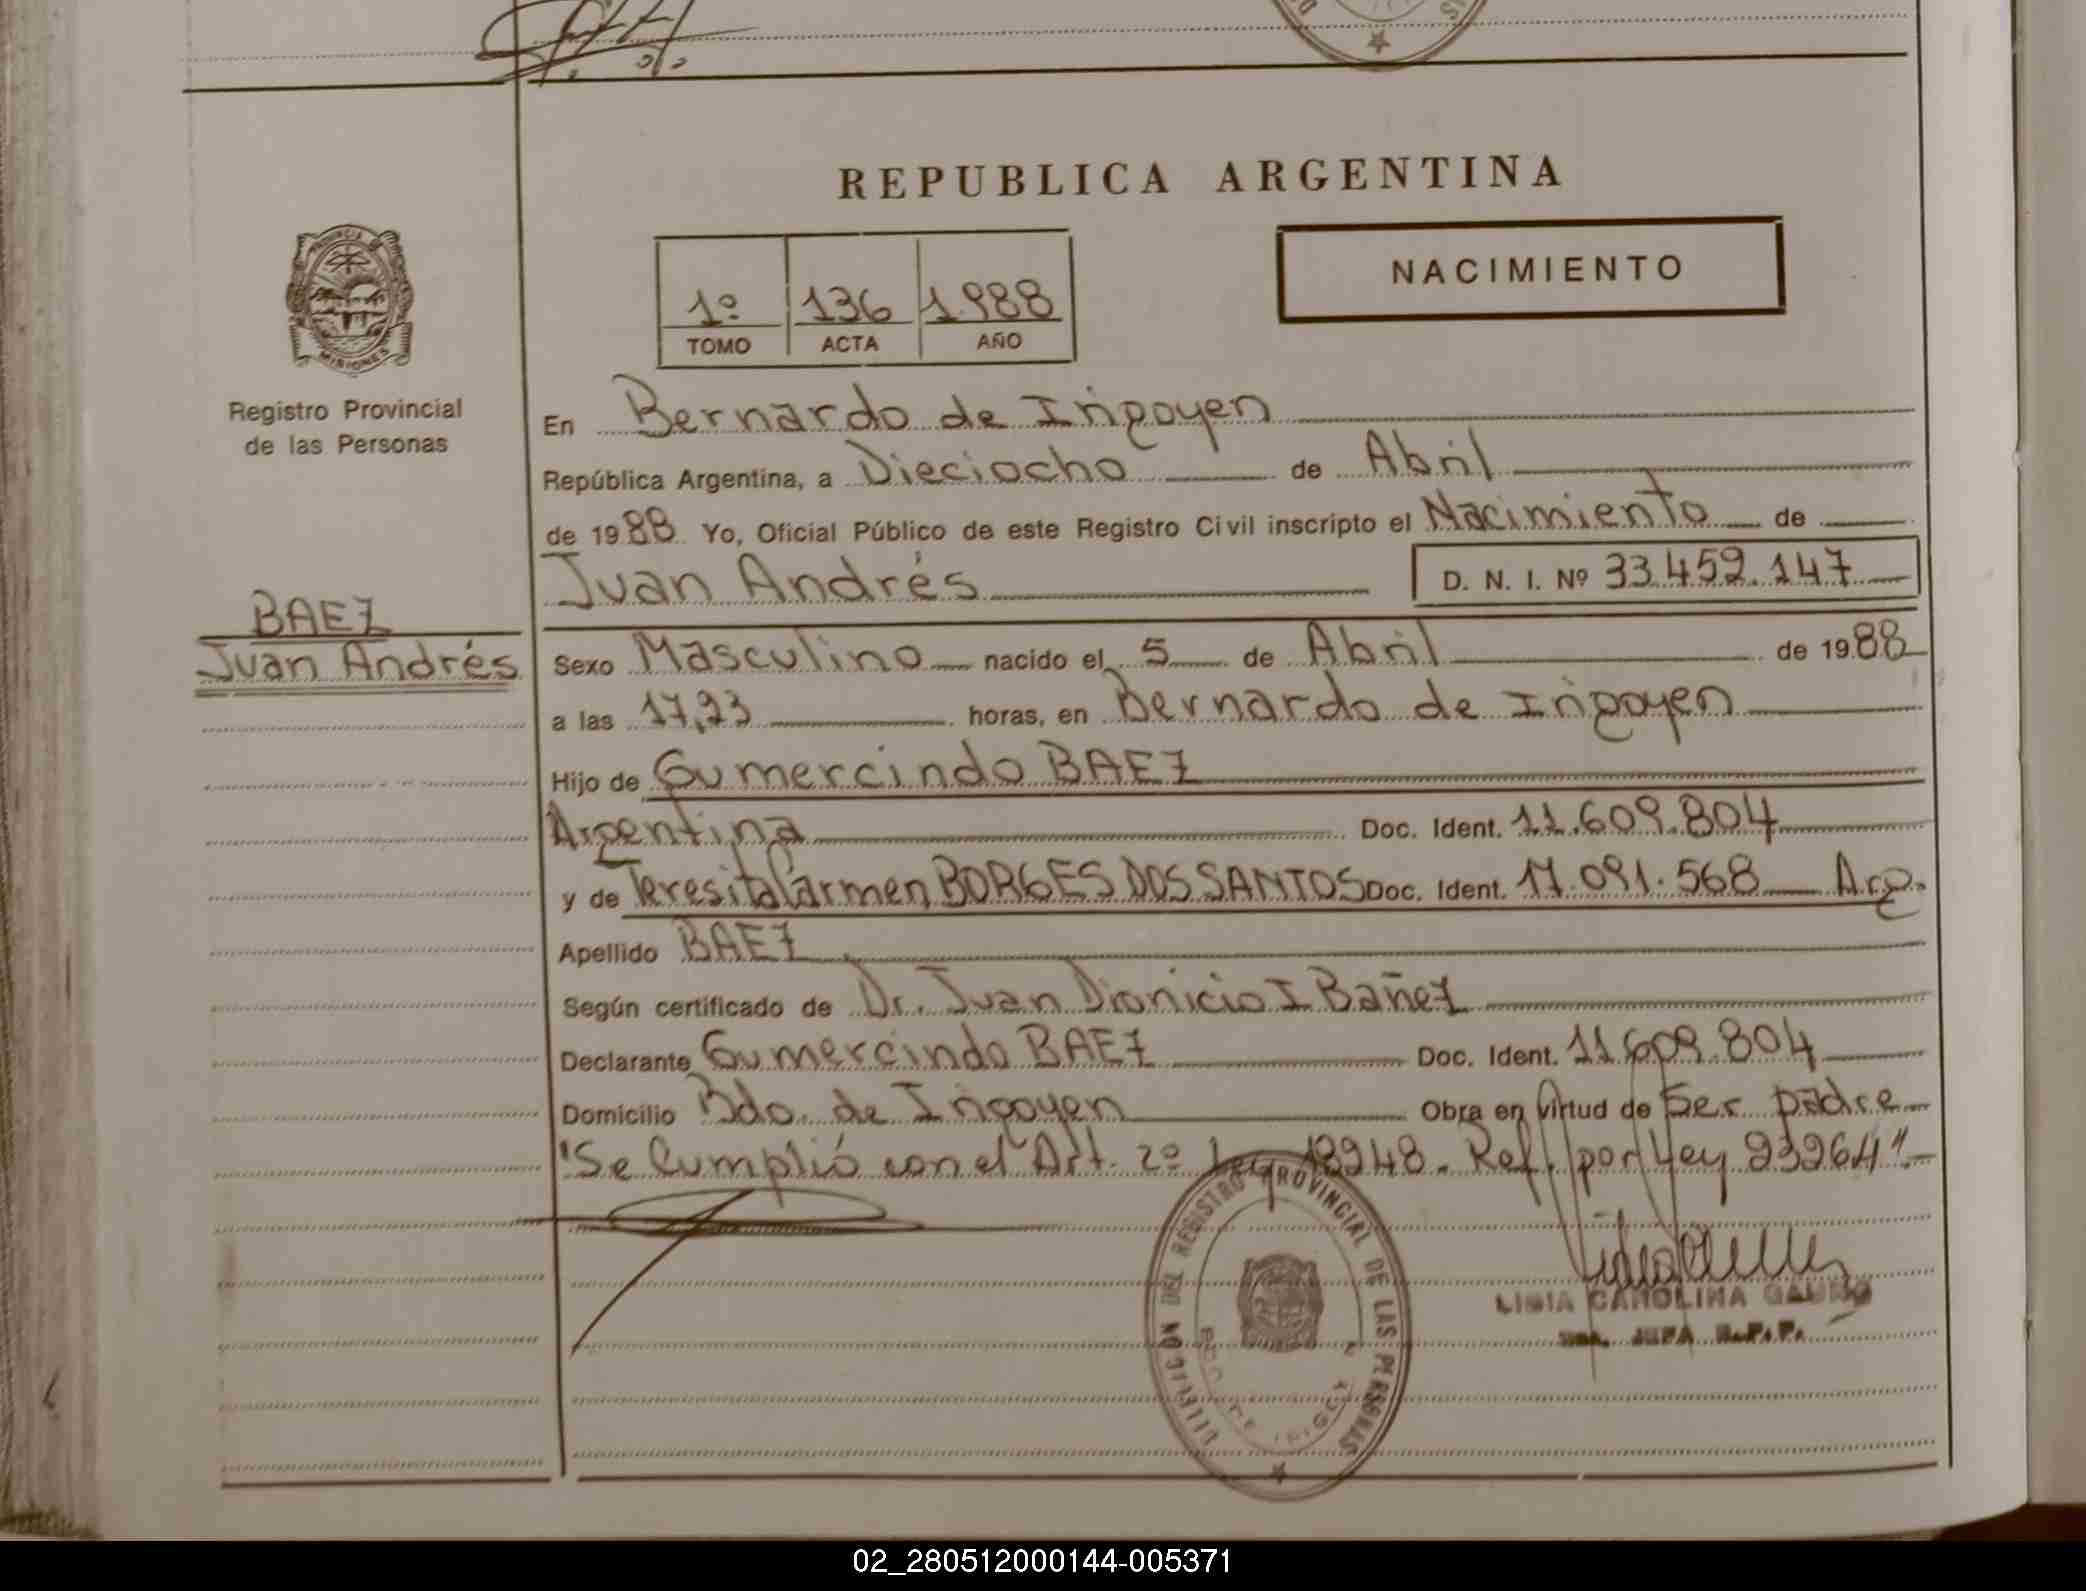 REPUBLICA ARGENTINA
NACIMIENTO
1º 136 1988
TOMO ACTA AÑO
PROVINCIA
MISIONES
Registro Provincial
de las Personas
BAEZ
Juan Andrés
En Bernardo de Irigoyen
República Argentina, a Dieciocho de Abril
de 1988 Yo, Oficial Público de este Registro Civil inscripto el Nacimiento de
Juan Andrés D. N. I. Nº 33.459.147
Sexo Masculino nacido el 5 de Abril de 1988
a las 17,23 horas, en Bernardo de Irigoyen
Hijo de Gumercindo BAEZ
Argentina Doc. Ident. 11.609.804
y de Teresita Carmen BORGES DOS SANTOS Doc. Ident. 17.091.568 Arg.
Apellido BAEZ
Según certificado de Dr. Juan Dionicio IBañez
Declarante Gumercindo BAEZ Doc. Ident. 11.609.804
Domicilio Bdo. de Irigoyen Obra en virtud de Ser padre
"Se Cumplió con el Art. 2º Ley 18248. Ref. por Ley 23264"
DIRECCION DEL REGISTRO PROVINCIAL DE LAS PERSONAS
CAROLINA
JEFA R.P.P.
02_280512000144-005371